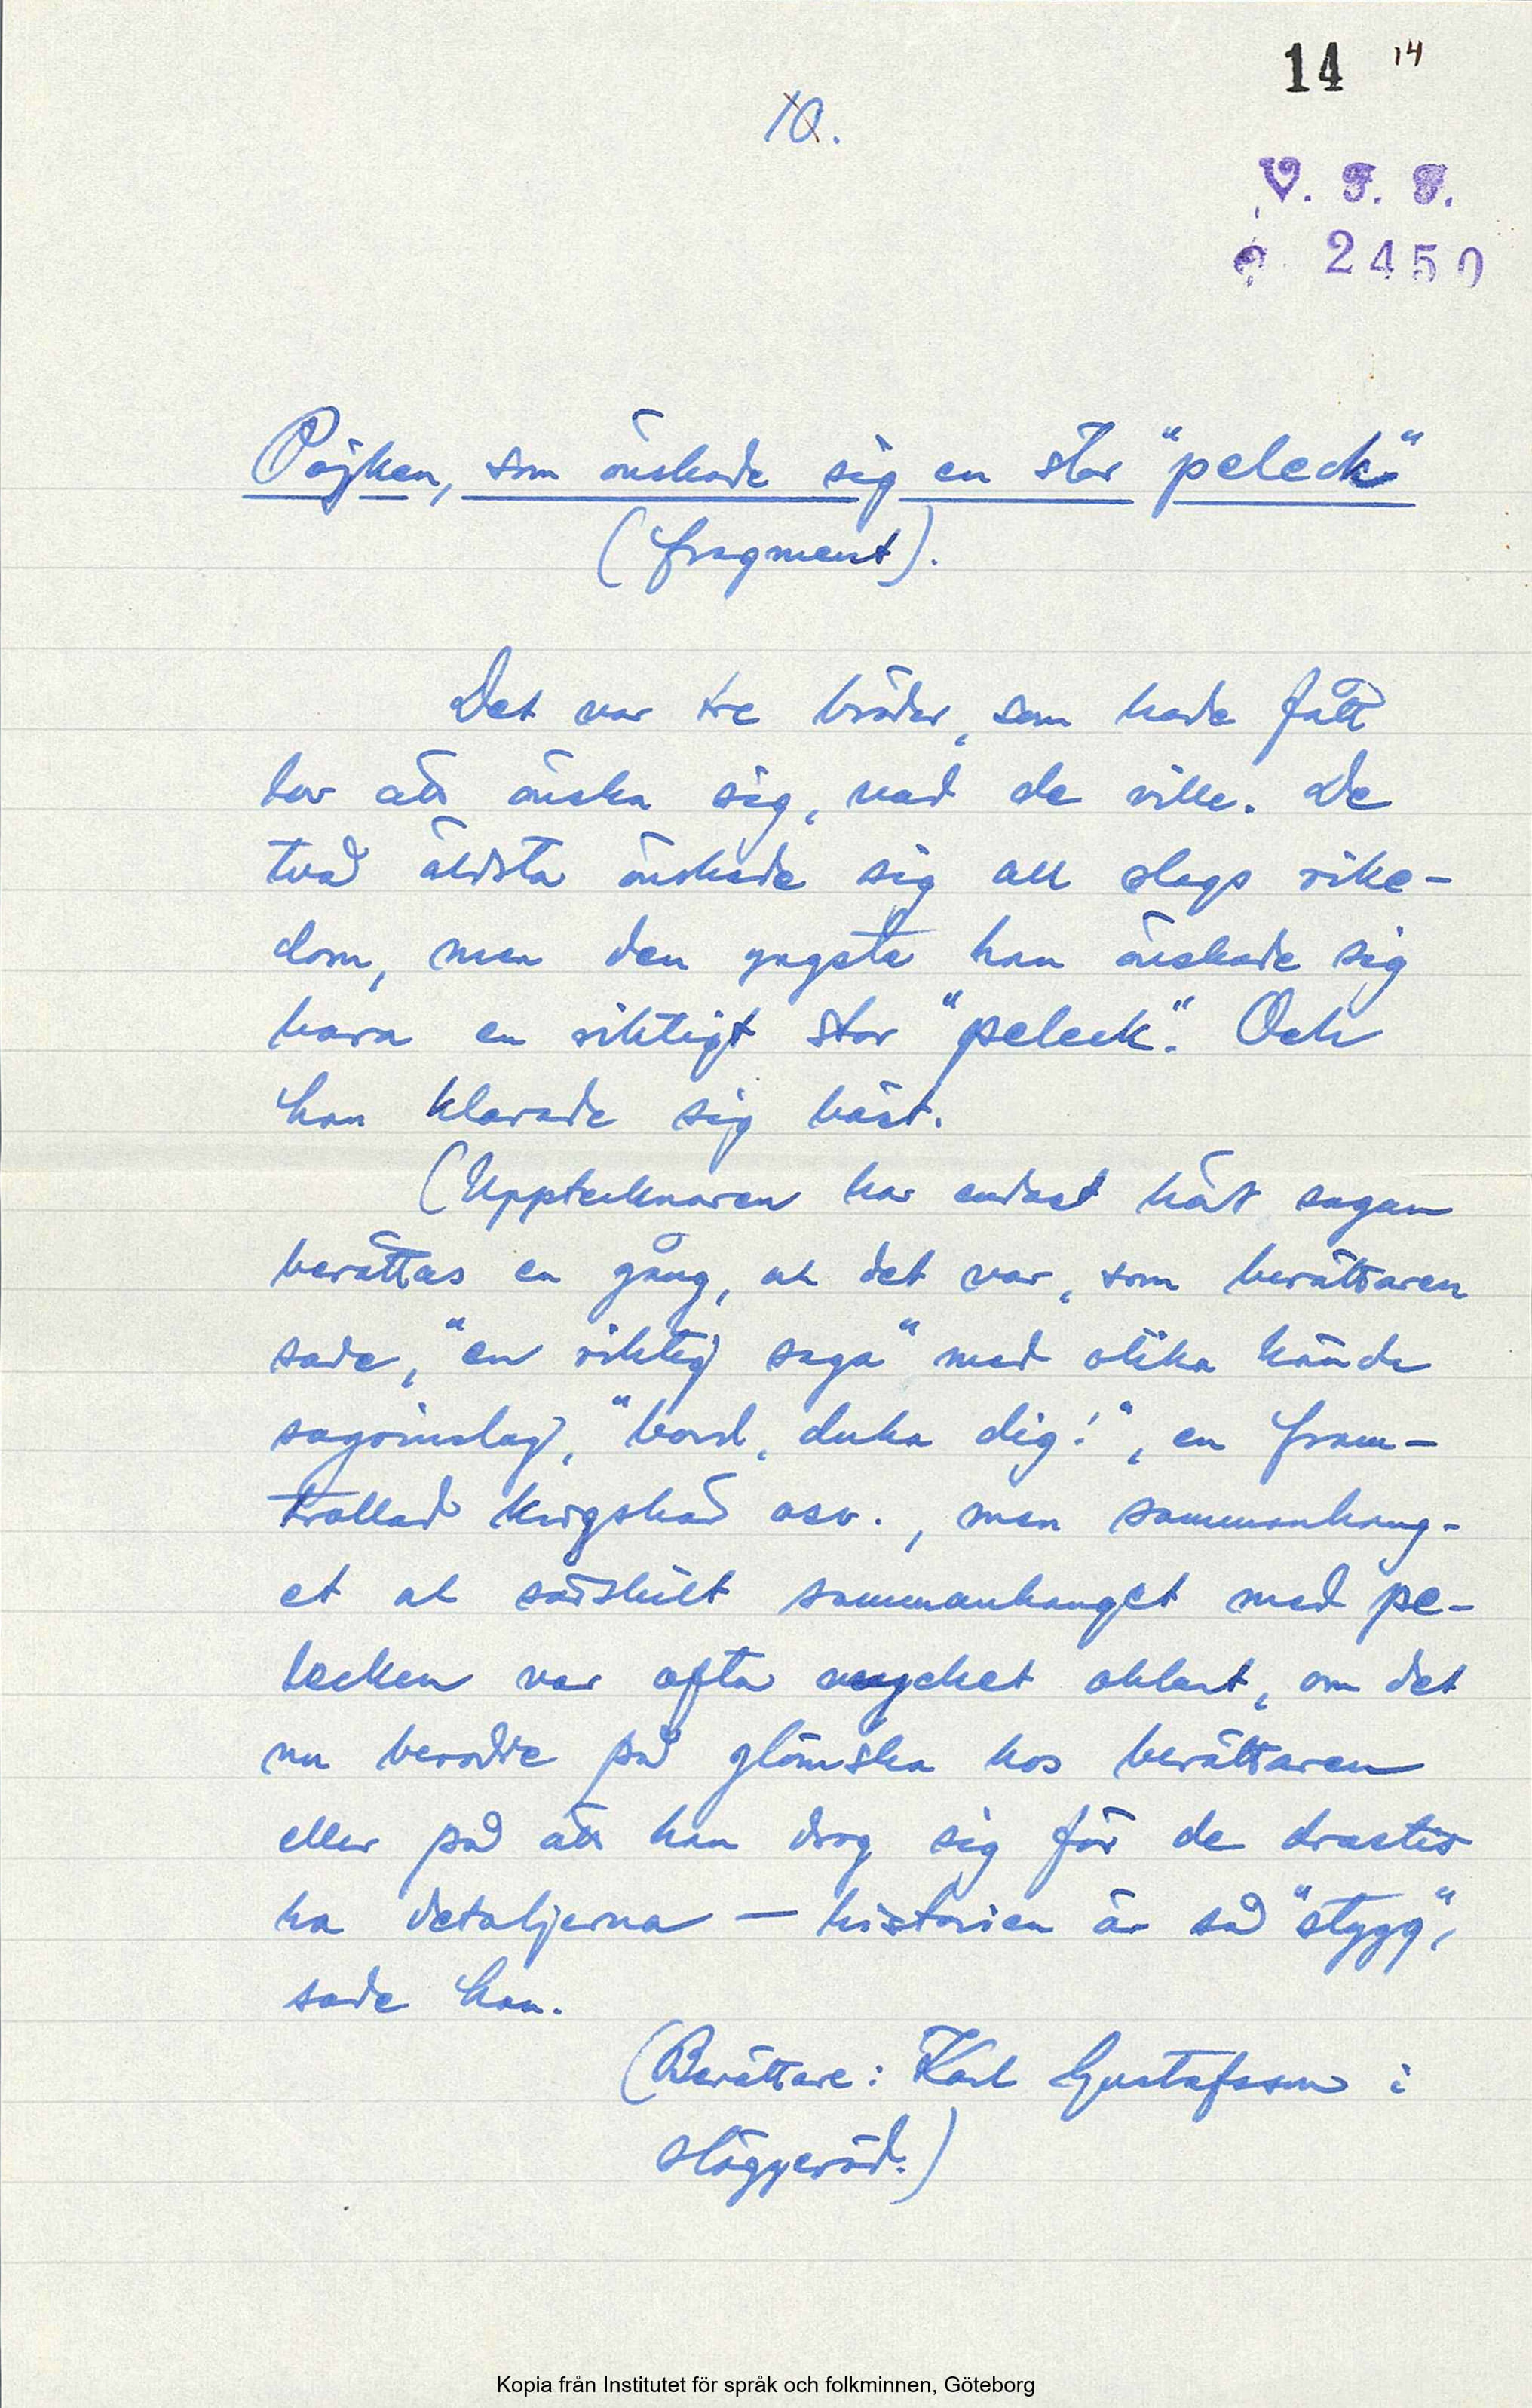 14 14
10.
V. F. F.
2450
Pojken, som önskade sig en stor "peleck"
(fragment).
Det var tre bröder, som hade fått
lov att önska sig, vad de ville. De
två äldsta önskade sig all slags rike-
dom, men den yngste han önskade sig
bara en riktigt stor "peleck". Och
han klarade sig bäst.
(Upptecknaren har endast hört sagan
berättas en gång, och det var, som berättaren
sade, "en riktig saga" med olika kända
sagoinslag, "bord, duka dig!", en fram-
trollad krigshär osv., men sammanhang-
et och särskilt sammanhanget med pe-
lecken var ofta mycket oklart, om det
nu berodde på glömska hos berättaren
eller på att han drog sig för de drastis
ka detaljerna — historien är så "stygg",
sade han.
(Berättare: Karl Gustafsson i
Släggeröd.)
Kopia från Institutet för språk och folkminnen, Göteborg